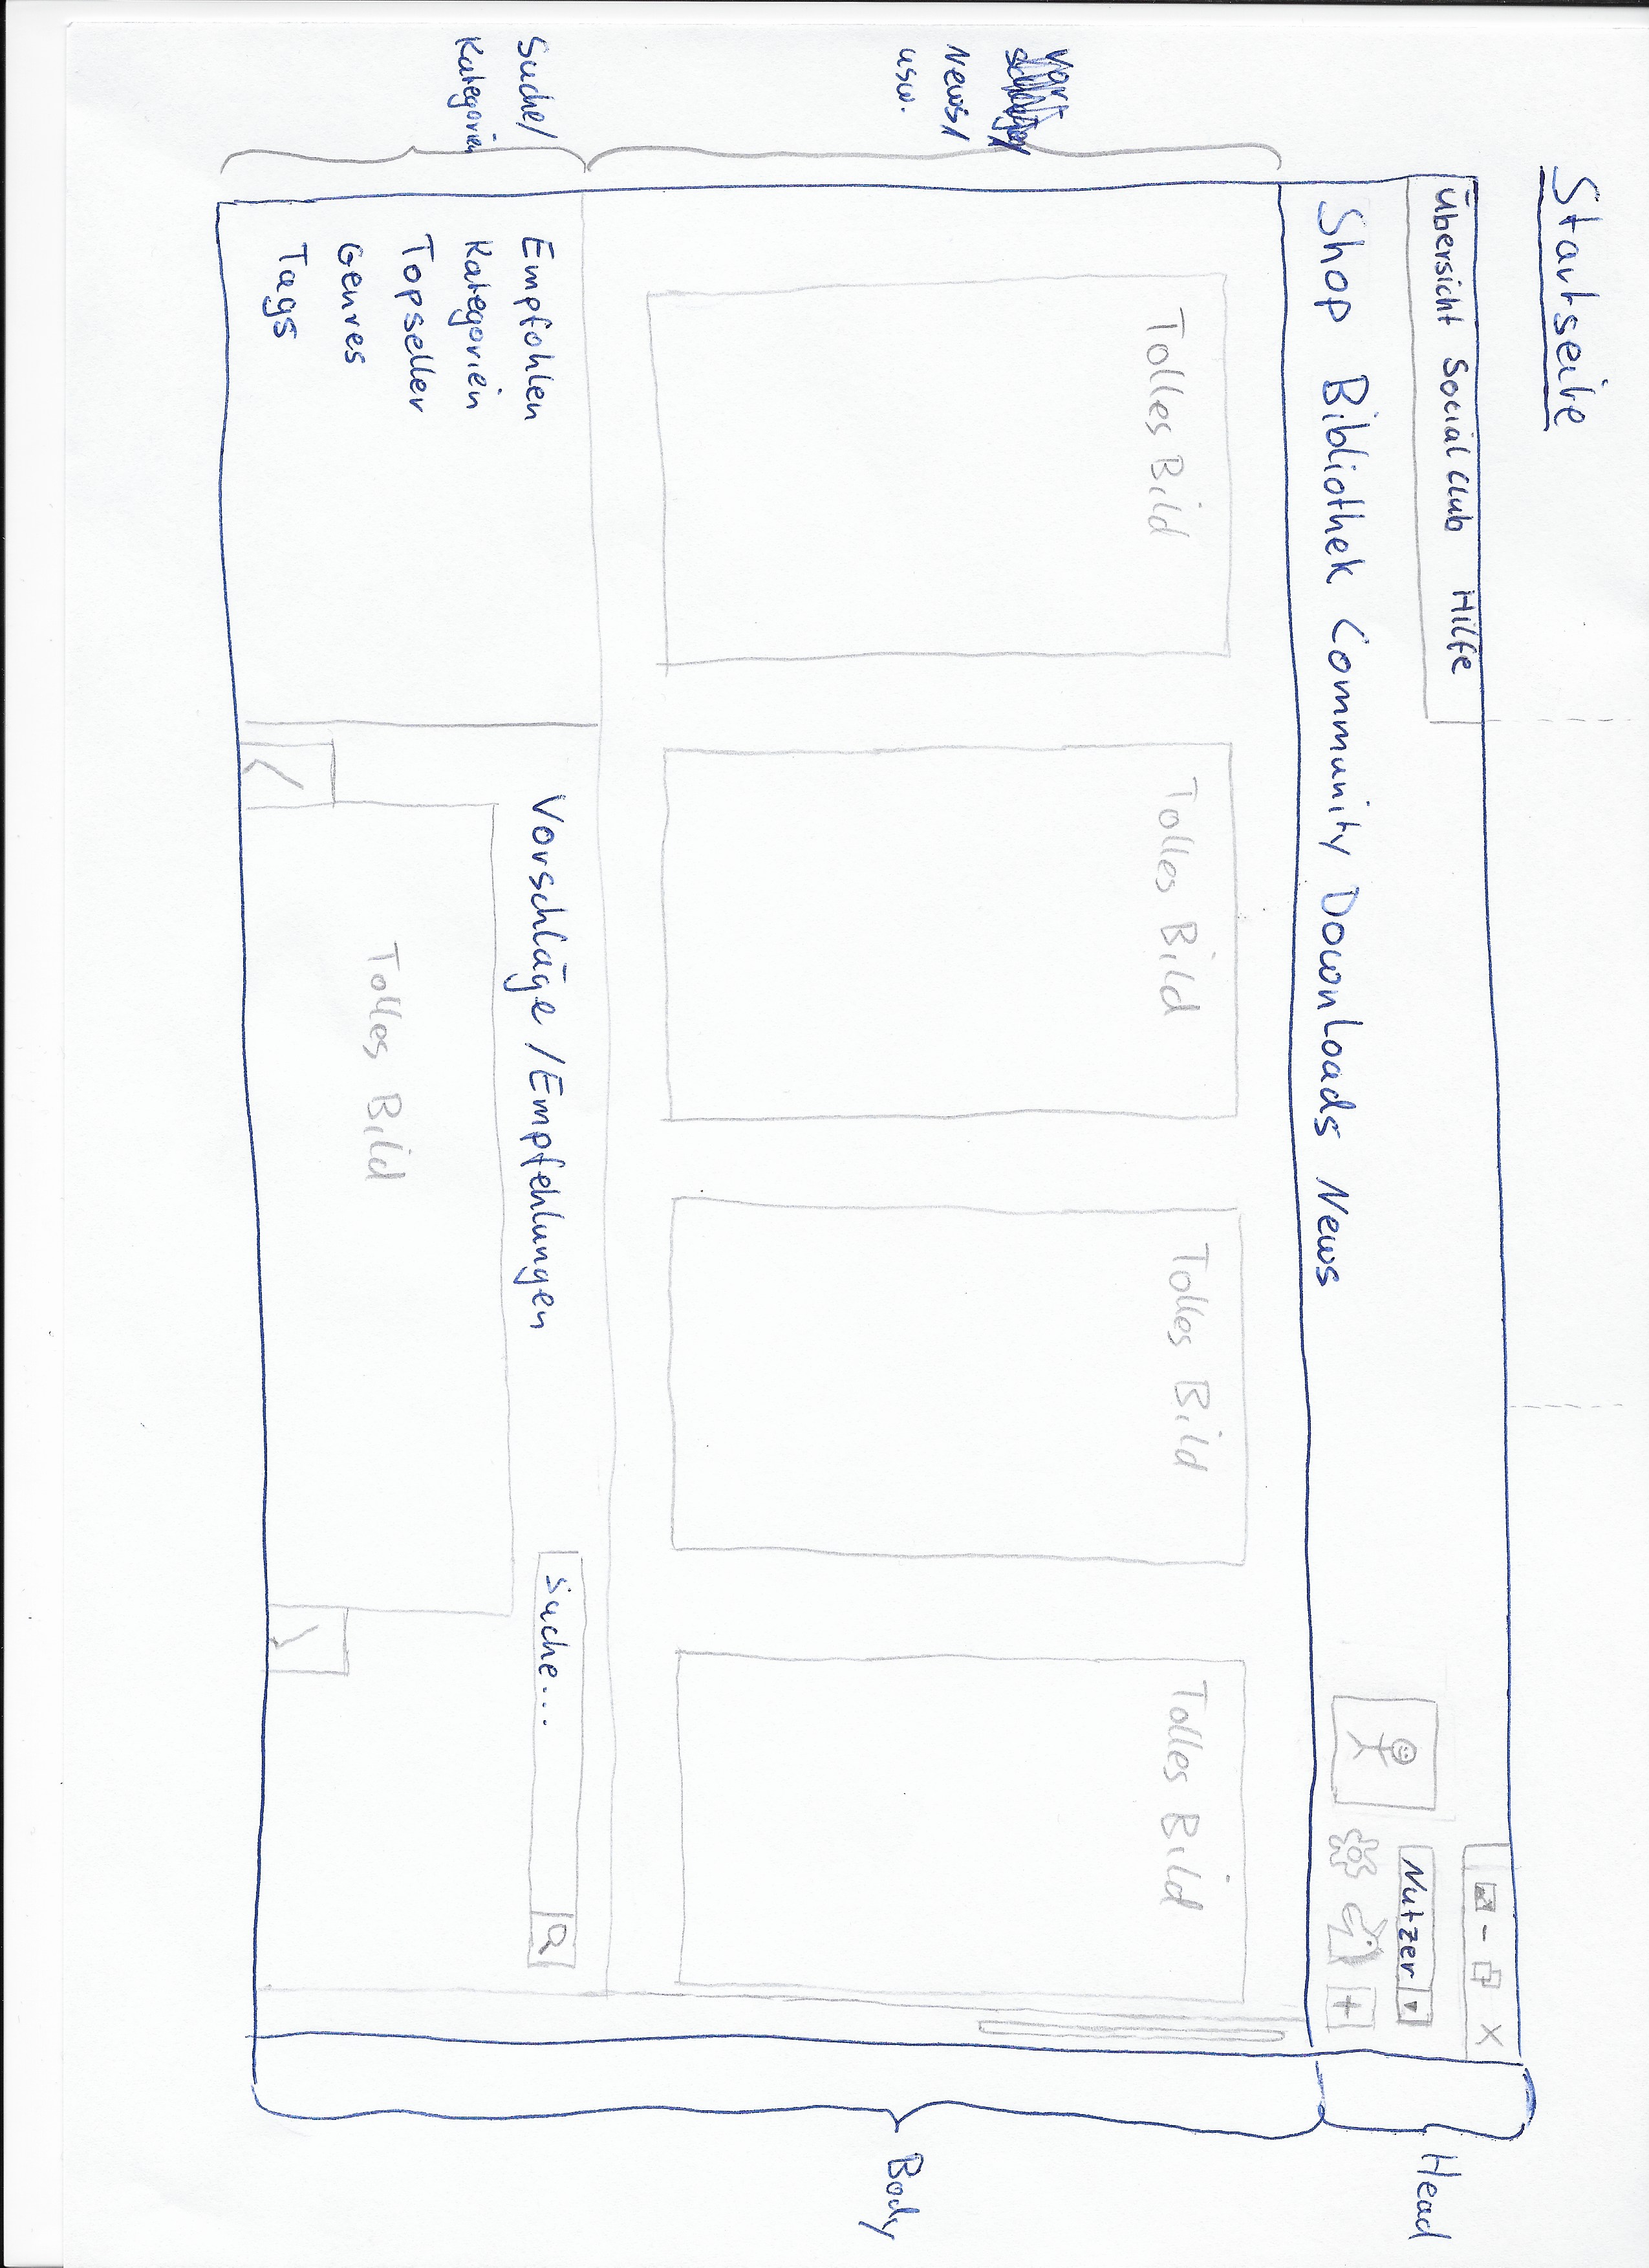 Startseite
Übersicht Social Club Hilfe
Nutzer
Head
Shop Bibliothek Community Downloads News
Tolles Bild Tolles Bild Tolles Bild Tolles Bild
Vor-
schläge/
News/
usw.
Body
Suche/
Kategorien
Empfohlen
Kategorien
Topseller
Genres
Tags
Vorschläge / Empfehlungen
Suche...
Tolles Bild